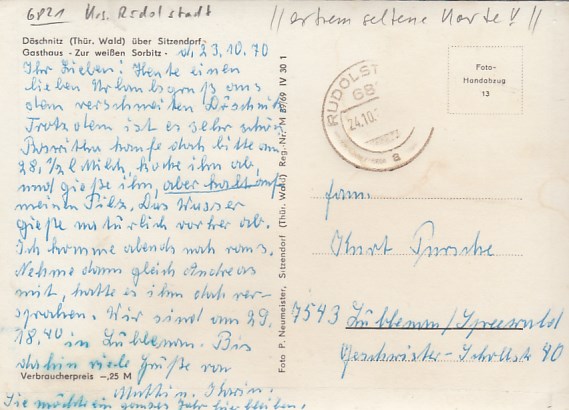 6821 Krs. Rudolstadt
//extrem seltene Karte!!//
Döschnitz (Thür. Wald) über Sitzendorf
Gasthaus - Zur weißen Sorbitz -
d. 23.10.70
Ihr Lieben! Heute einen
lieben Urlaubsgruß aus
dem verschneiten Döschnitz
Trotzdem ist es sehr schön
Roswitha kaufe doch bitte am
28. 1/2 l Milch, koche ihn ab,
und gieße ihn, aber kalt auf
meinen Pilz. Das Wasser
gieße natürlich vorher ab.
Ich komme abends noch
Nehme dann gleich Andreas
mit, hatte es ihm doch ver-
sprochen. Wir sind am 29.
18.40 in Lübbenau. Bis
dahin viele Grüße von
Mutti u. Karin.
Sie möchte ein ganzes Jahr hier bleiben.
Verbraucherpreis -,25 M
Foto P. Neumeister, Sitzendorf (Thür. Wald) Reg.-Nr. M 89/69 IV 30 1
RUDOLST
68
24.10.
a
Foto-
Handabzug
13
Fam.
Kurt Pursche
7543 Lübbenau/Spreewald
Geschwister-Scholl-Str 40